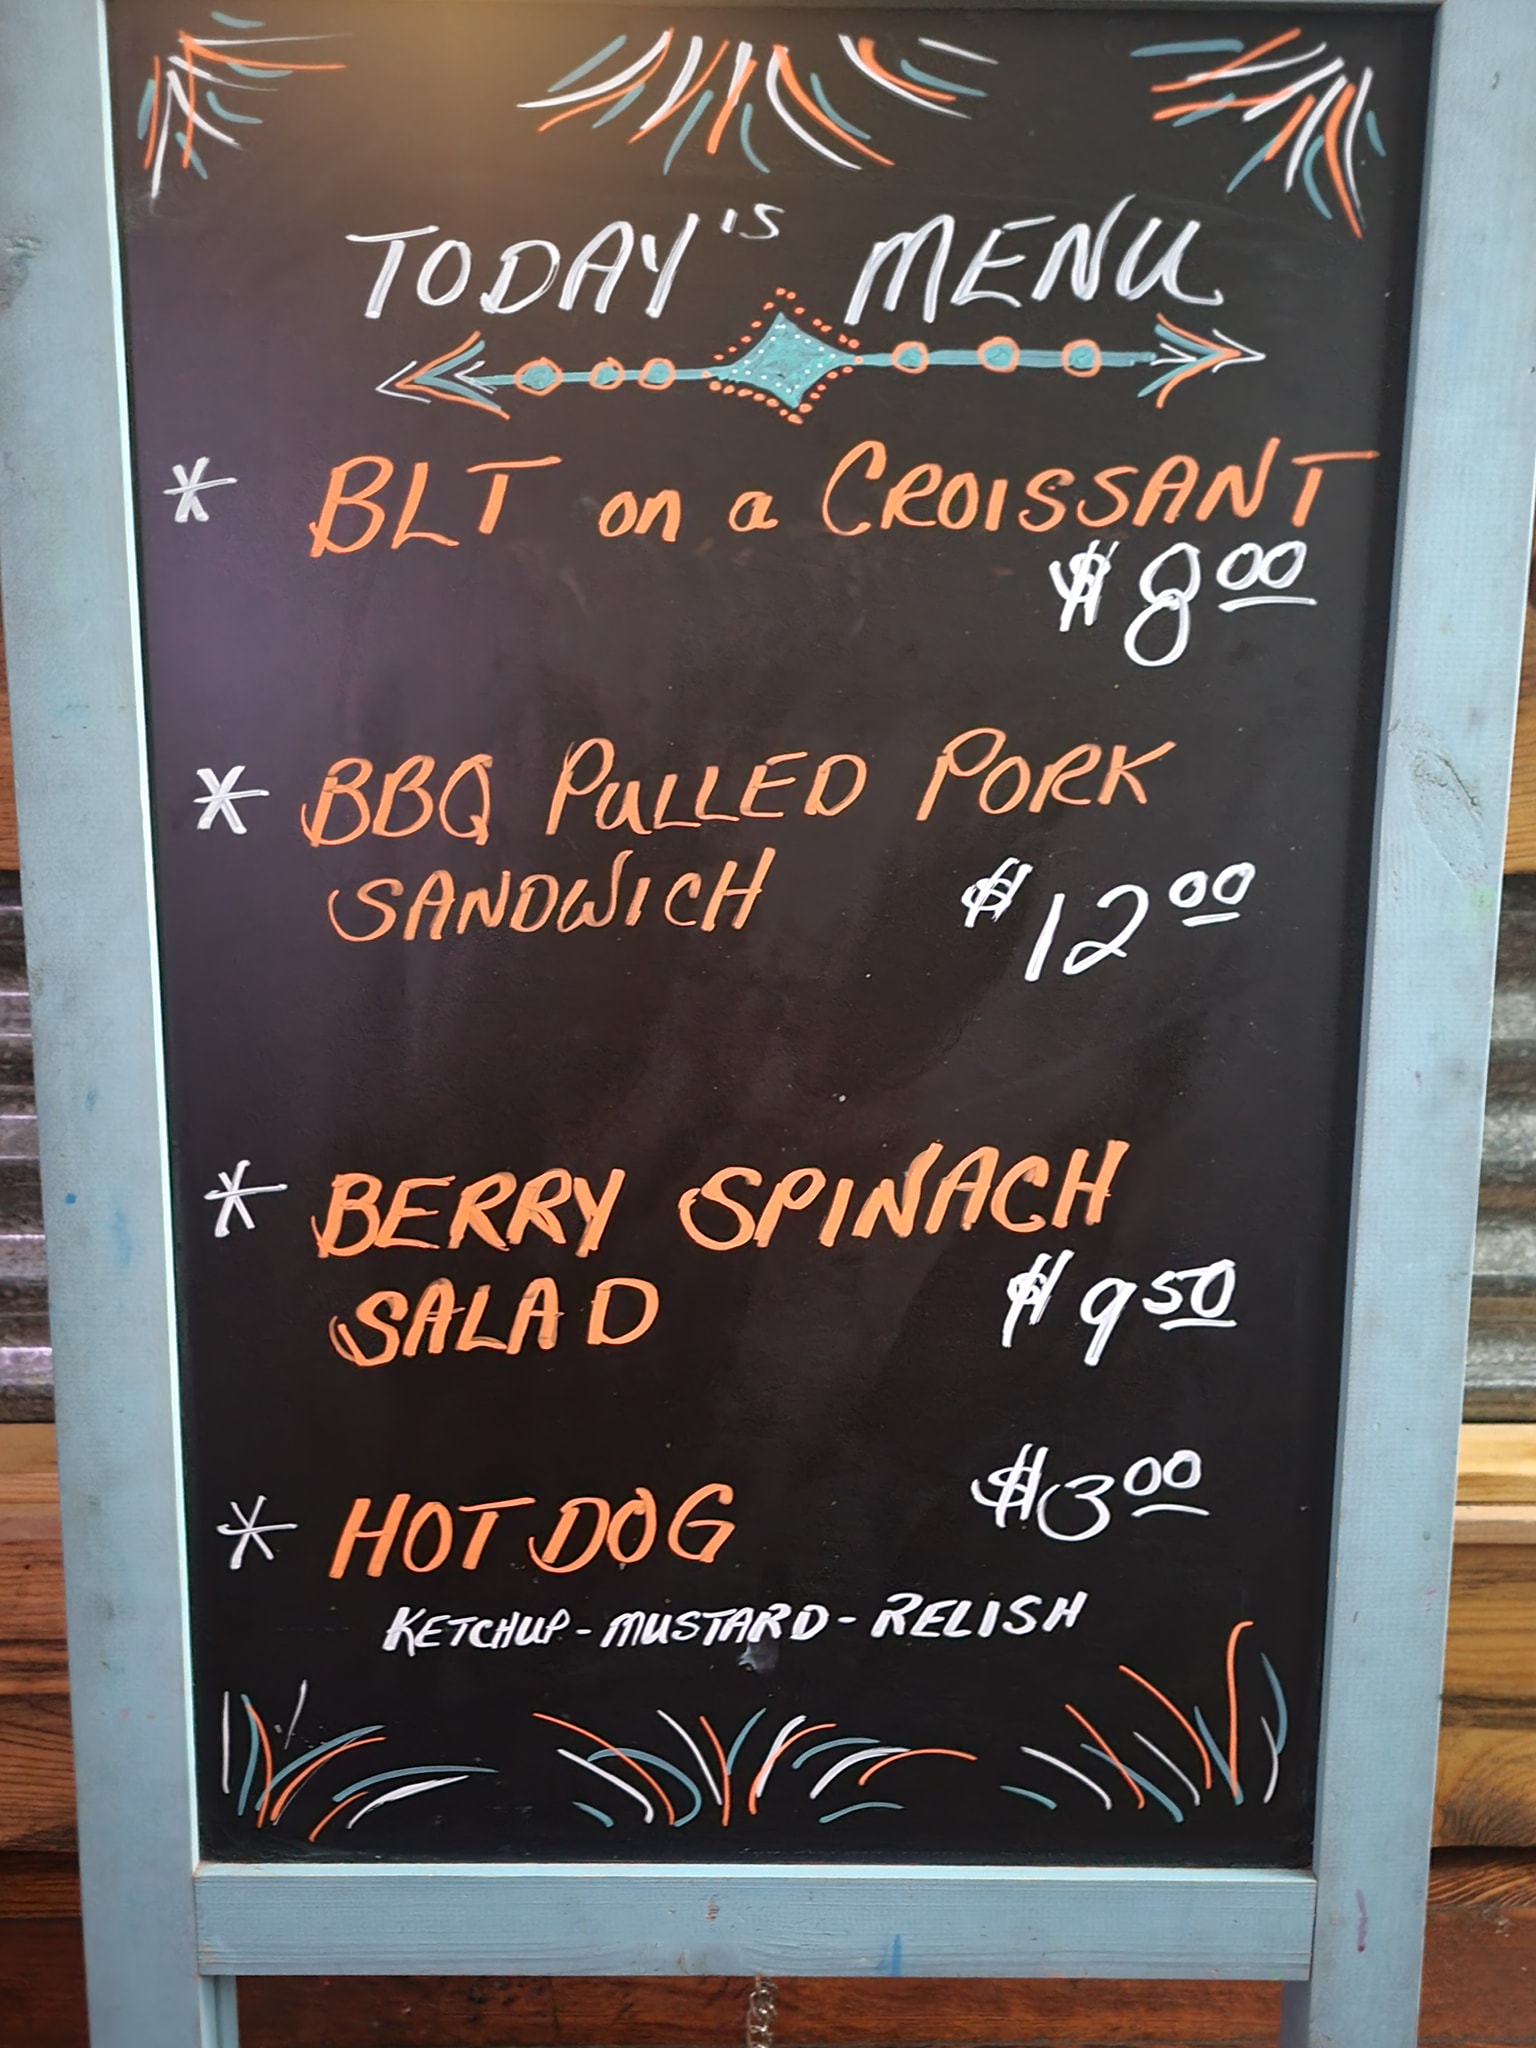 TODAY'S MENU
* BLT on a CROISSANT
$8.00
* BBQ PULLED PORK
SANDWICH $12.00
* BERRY SPINACH
SALAD $9.50
* HOT DOG $3.00
KETCHUP - MUSTARD - RELISH